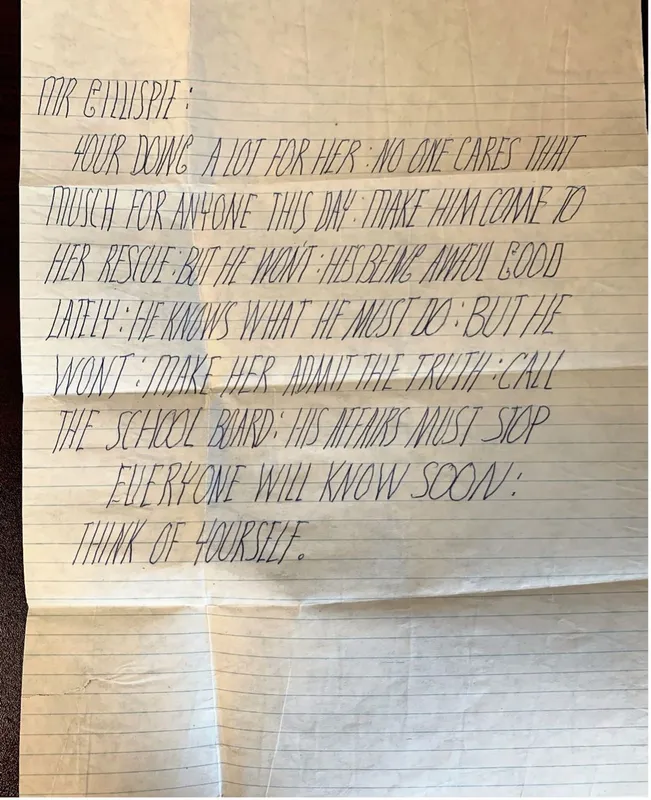 MR GILLISPIE:
YOUR DOING A LOT FOR HER: NO ONE CARES THAT
MUSCH FOR ANYONE THIS DAY: MAKE HIM COME TO
HER RESCUE: BUT HE WON'T: HE'S BEING AWFUL GOOD
LATELY: HE KNOWS WHAT HE MUST DO: BUT HE
WONT: MAKE HER ADMIT THE TRUTH: CALL
THE SCHOOL BOARD: HIS AFFAIRS MUST STOP
EVERYONE WILL KNOW SOON:
THINK OF YOURSELF.